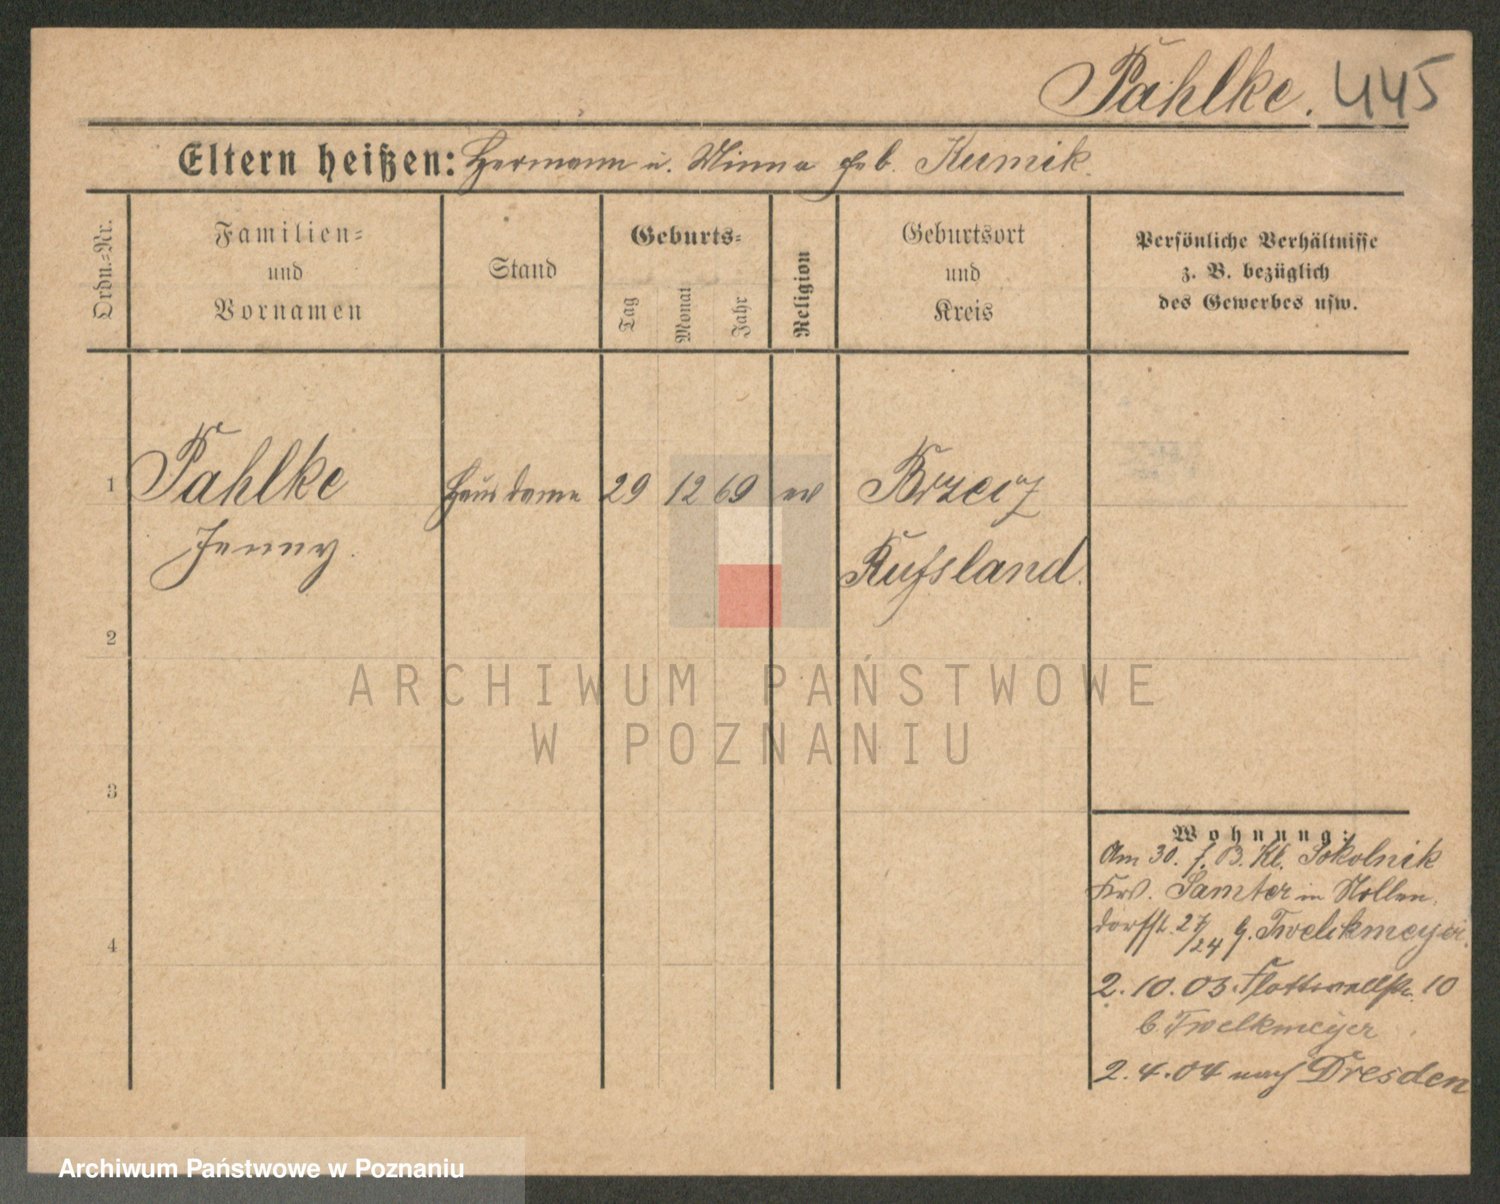 Pahlke. 445
Eltern heißen: Hermann u. Minna geb. Kumik.
Ordn.=Nr.
Familien=
und
Vornamen
Stand
Geburts=
Tag
Monat
Jahr
Religion
Geburtsort
und
Kreis
Persönliche Verhältnisse
z. B. bezüglich
des Gewerbes usw.
1 Pahlke Hausdame 29 12 69 ev Brzeiz
Jenny. Russland.
2
3
4
Wohnung:
Am 30. 1. 03. Kl. Sokolnik
Krs. Samter in Nollen
dorfst. 27/24 b. Twelkmeyer.
2. 10. 03. Flottwellstr. 10
b Twelkmeyer
2. 4. 04 nach Dresden
ARCHIWUM PAŃSTWOWE
W POZNANIU
Archiwum Państwowe w Poznaniu